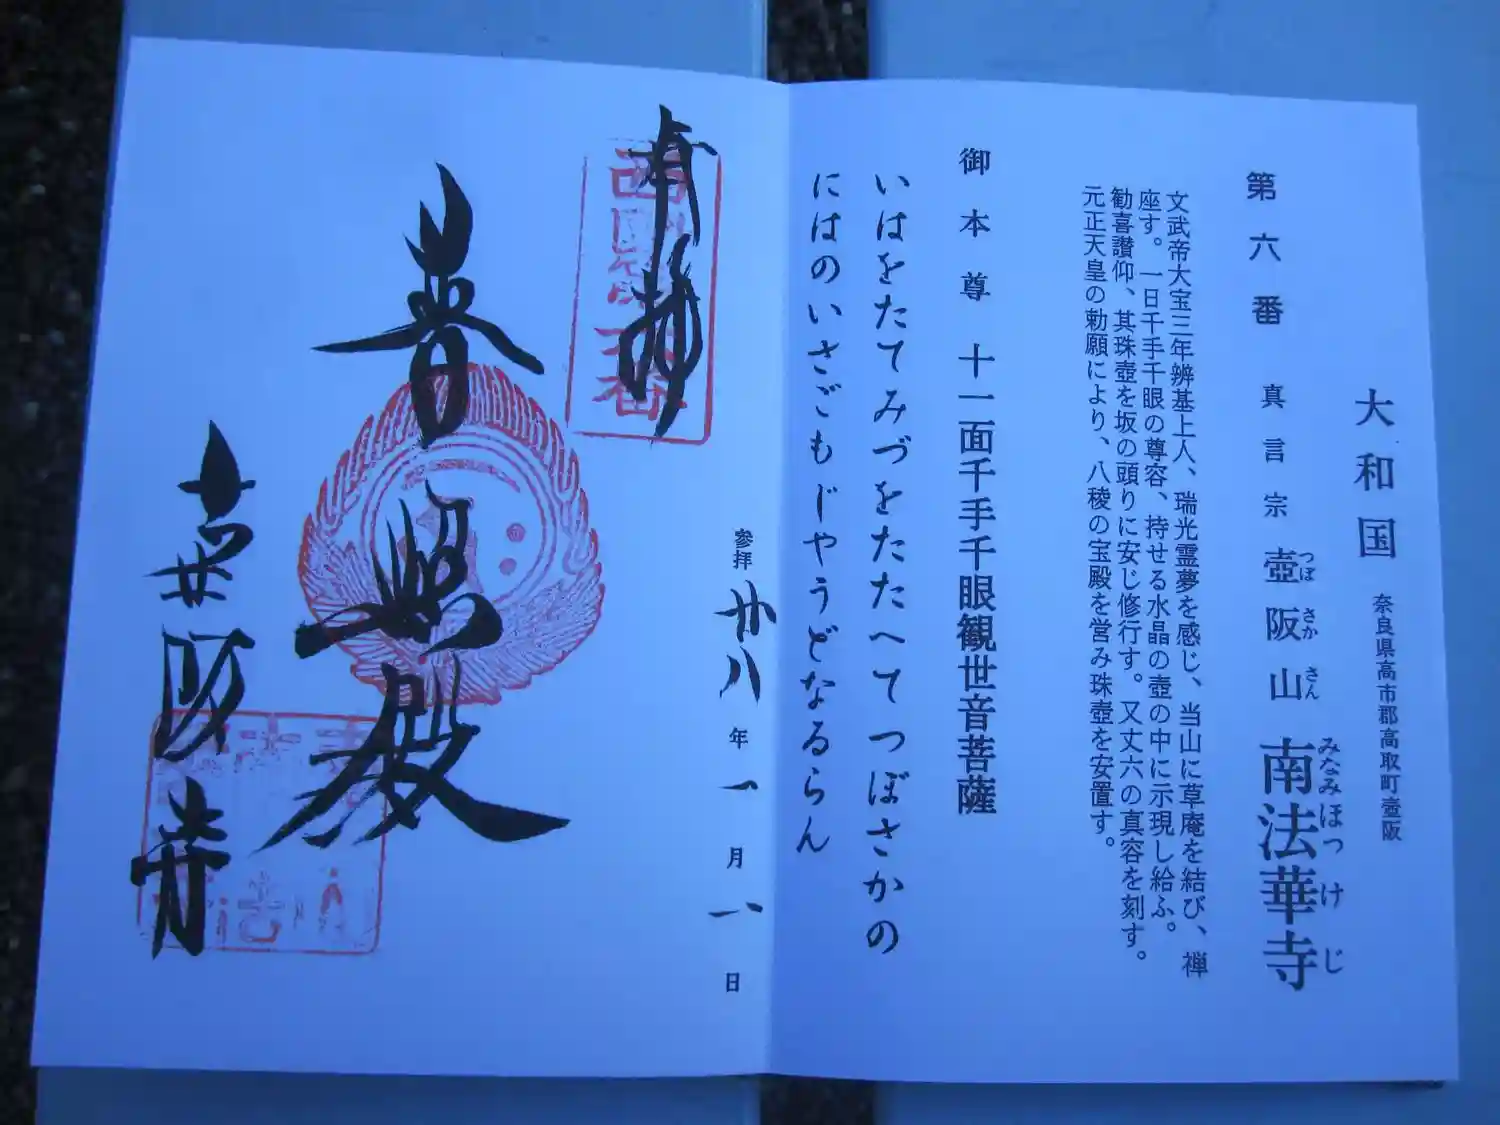 大和国 奈良県高市郡高取町壺阪
第六番 真言宗 壺阪山 南法華寺
つぼ さか さん みなみほっけじ
文武帝大宝三年辨基上人、瑞光霊夢を感じ、当山に草庵を結び、禅
座す。一日千手千眼の尊容、持せる水晶の壺の中に示現し給ふ。
勧喜讃仰、其珠壺を坂の頭りに安じ修行す。又丈六の真容を刻す。
元正天皇の勅願により、八稜の宝殿を営み珠壺を安置す。
御本尊 十一面千手千眼観世音菩薩
いはをたてみづをたたへてつぼさかの
にはのいさごもじやうどなるらん
参拝 廿八年一月一日
奉拝
西国第六番
普照殿
壺阪寺